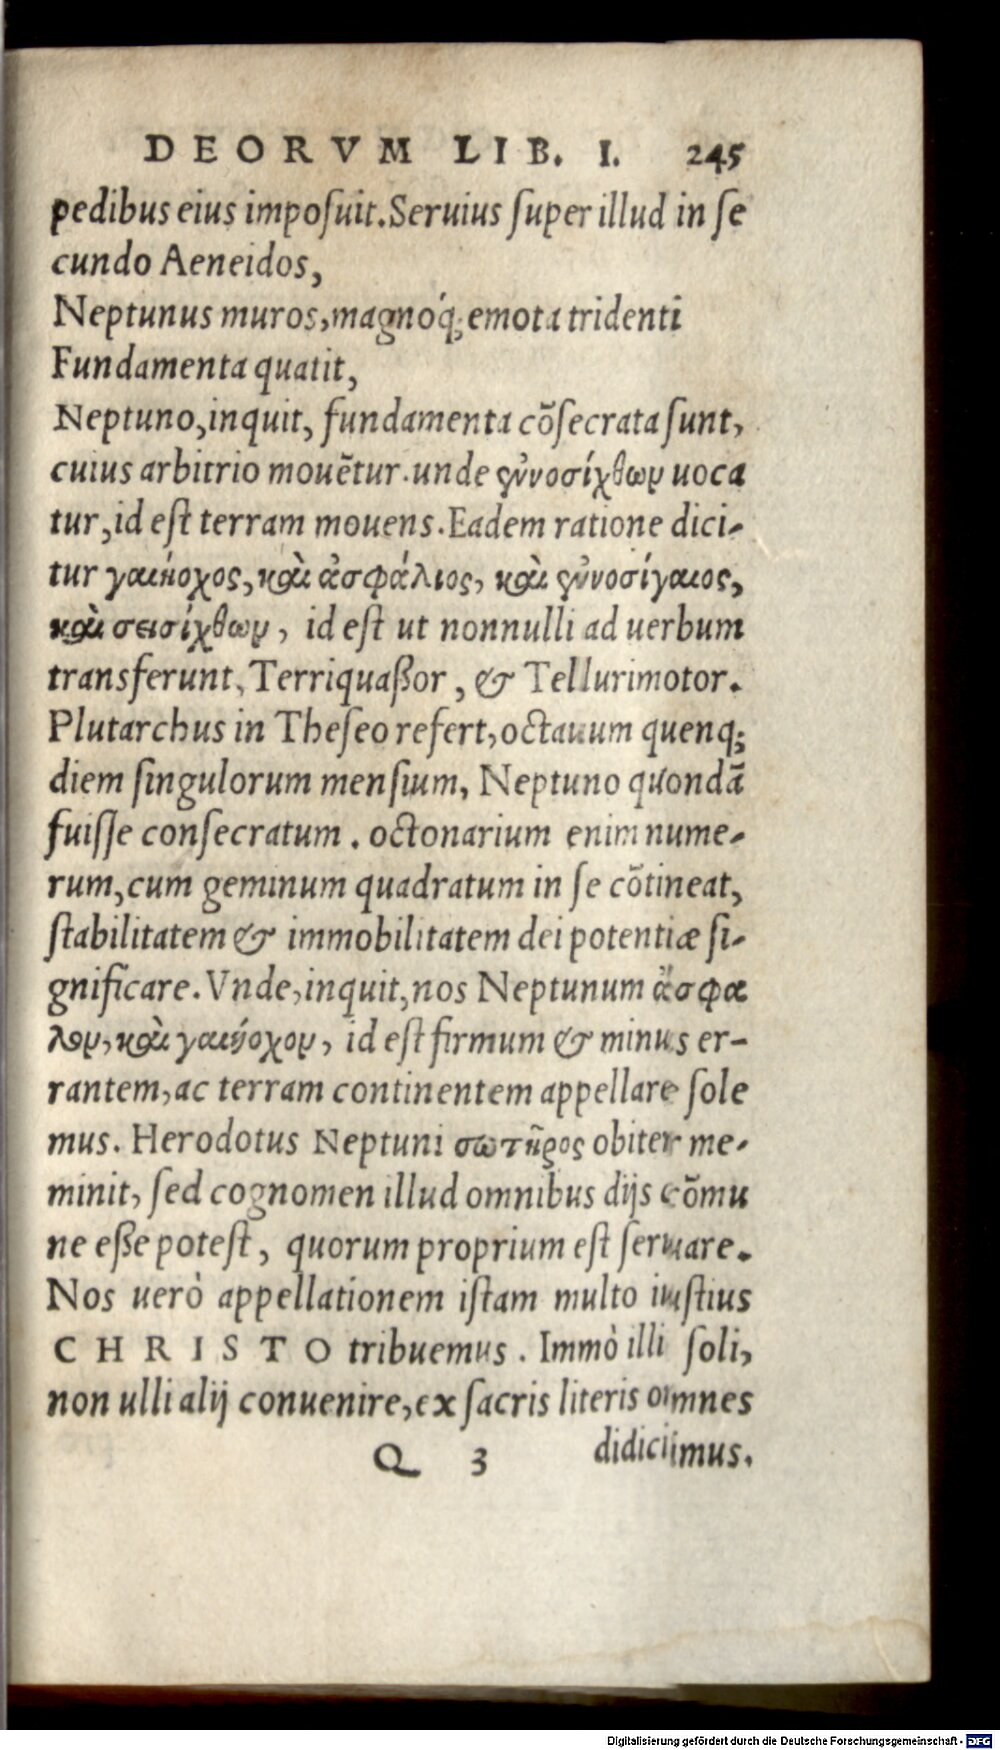 DEORVM LIB. I. 245
pedibus eius imposuit. Seruius super illud in se
cundo Aeneidos,
Neptunus muros, magnóq; emota tridenti
Fundamenta quatit,
Neptuno, inquit, fundamenta cōsecrata sunt,
cuius arbitrio mouētur. unde ἐννοσίχθων uoca
tur, id est terram mouens. Eadem ratione dici-
tur γαιήοχος, καὶ ἀσφάλιος, καὶ ἐννοσίγαιος,
καὶ σεισίχθων, id est ut nonnulli ad uerbum
transferunt, Terriquaßor, & Tellurimotor.
Plutarchus in Theseo refert, octauum quenq;
diem singulorum mensium, Neptuno quondā
fuisse consecratum. octonarium enim nume-
rum, cum geminum quadratum in se cōtineat,
stabilitatem & immobilitatem dei potentiæ si-
gnificare. Vnde, inquit, nos Neptunum ἄσφα
λον, καὶ γαιήοχον, id est firmum & minus er-
rantem, ac terram continentem appellare sole
mus. Herodotus Neptuni σωτῆρος obiter me-
minit, sed cognomen illud omnibus dijs cōmu
ne eße potest, quorum proprium est seruare.
Nos uerò appellationem istam multo iustius
CHRISTO tribuemus. Immò illi soli,
non ulli alij conuenire, ex sacris literis omnes
Q 3 didicimus.
Digitalisierung gefördert durch die Deutsche Forschungsgemeinschaft - DFG